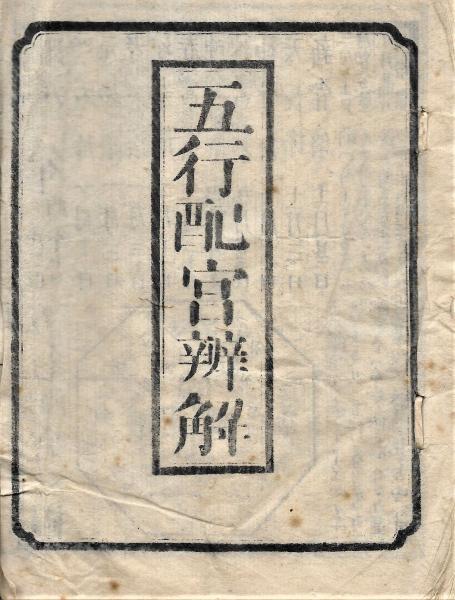 五行配宫辨解